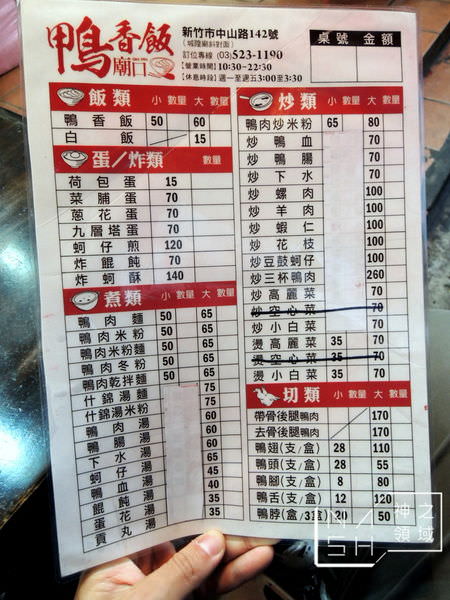 鴨香飯
廟口
新竹市中山路142號
(城隍廟斜對面)
訂位專線 (03)523-1190
【營業時間】10:30-22:30
【休息時段】週一至週五3:00至3:30
桌號 金額
飯類 小 數量 大 數量
鴨香飯 50 60
白飯 15
蛋／炸類 數量
荷包蛋 15
菜脯蛋 70
蔥花蛋 70
九層塔蛋 70
蚵仔煎 120
炸餛飩 70
炸蚵酥 140
煮類 小 數量 大 數量
鴨肉麵 50 65
鴨肉米粉 50 65
鴨肉米粉麵 50 65
鴨肉冬粉 50 65
鴨肉乾拌麵 50 65
什錦湯麵 75
什錦湯米粉 75
鴨肉湯 75
鴨腸湯 75
下水湯 65
蚵仔湯 65
鴨血湯 45
餛飩湯 40
蛋花湯 35
貢丸湯 35
炒類 小 數量 大 數量
鴨肉炒米粉 65 80
炒鴨血 70
炒鴨腸 70
炒下水 70
炒螺肉 100
炒羊肉 100
炒蝦仁 100
炒花枝 100
炒豆鼓蚵仔 100
炒三杯鴨肉 260
炒高麗菜 70
炒空心菜 70
炒小白菜 70
燙高麗菜 35 70
燙空心菜 35 70
燙小白菜 35 70
切類 小 數量 大 數量
帶骨後腿鴨肉 170
去骨後腿鴨肉 170
鴨翅(支/盒) 28 110
鴨頭(支/盒) 28 55
鴨腳(支/盒) 8 80
鴨舌(支/盒) 12 120
鴨脖(盒/3盒) 20 50
NASH
神之領域